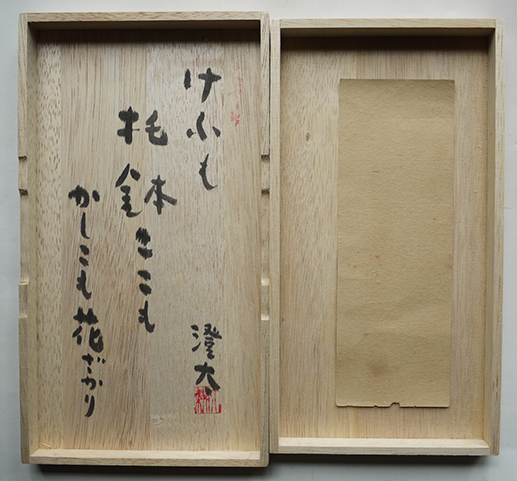 けふも
托鉢ここも
かしこも花ざかり
澄太